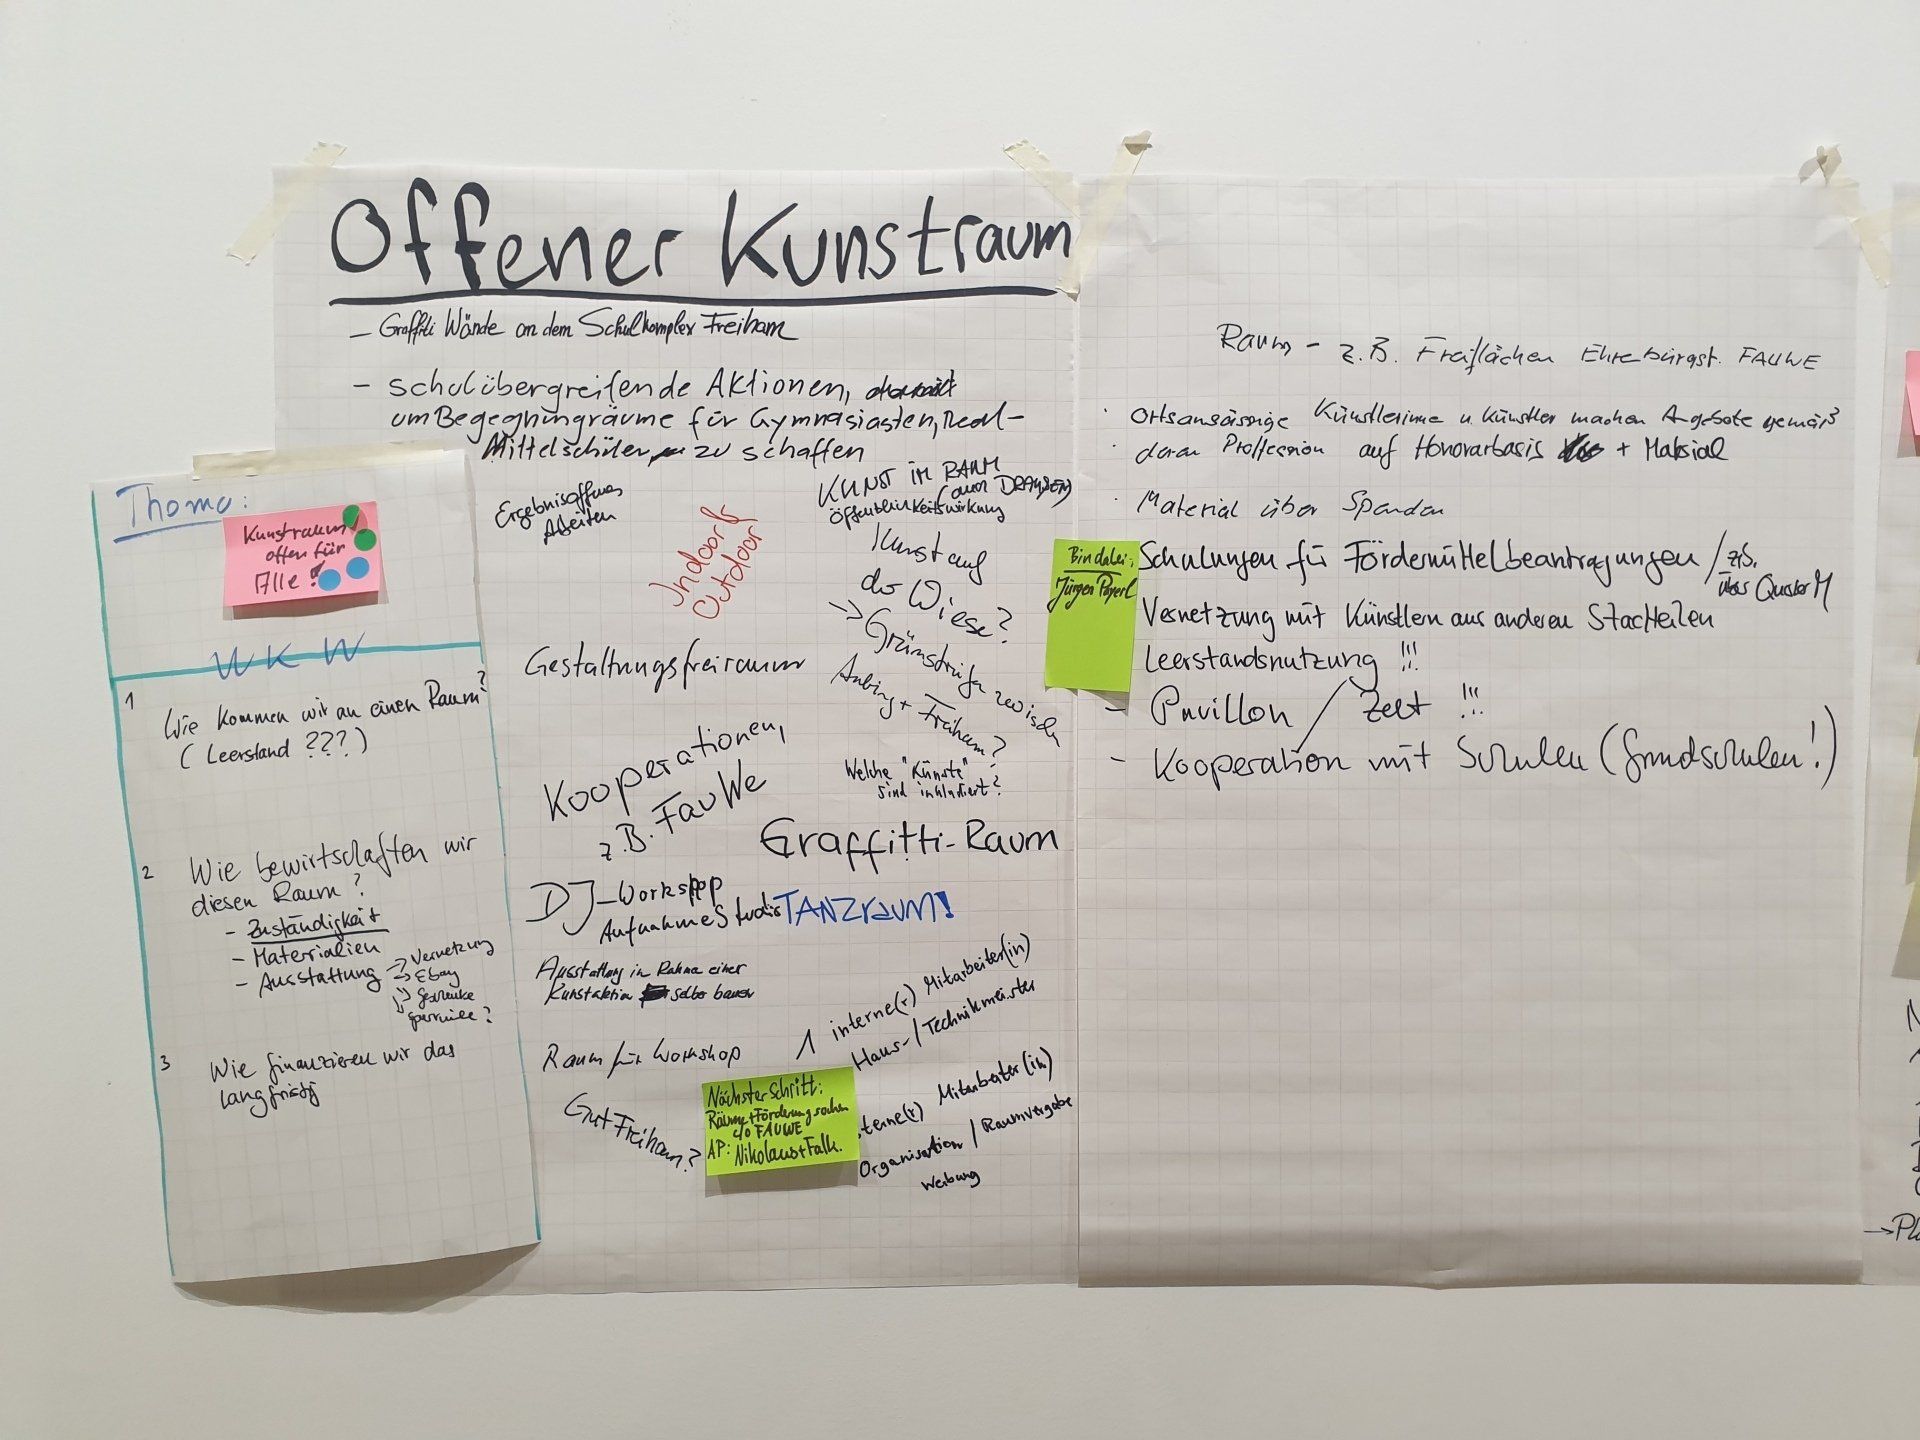 Offener Kunstraum
- Graffiti Wände an dem Schulkomplex Freiham
- schulübergreifende Aktionen,
um Begegnungräume für Gymnasiasten, Real-
Mittelschüler zu schaffen
Thema:
Kunstraum
offen für
Alle!
W K W
1 Wie kommen wir an einen Raum?
(Leerstand ???)
2 Wie bewirtschaften wir
diesen Raum?
- Zuständigkeit
- Materialien
- Ausstattung → Vernetzung
→ Ebay
→ Geschenke
3 Wie finanzieren wir das
langfristig
Ergebnisoffenes
Arbeiten
Indoor &
Outdoor
KUNST IM RAUM
(auch DRAUSSEN)
Öffentlichkeitswirkung
Kunst auf
der Wiese?
→ Grünstreifen zwischen
Aubing + Freiham?
Gestaltungsfreiraum
Kooperationen,
z.B. FauWe
Welche "Künste"
sind inkludiert?
Graffitti-Raum
DJ-Workshop
Aufnahmestudio
TANZraum!
Ausstattung in Rahmen einer
Kunstaktion selbst bauen
Raum für Workshop
1 interne(r) Mitarbeiter(in)
Haus-/Technikmeister
Gut Freiham?
Nächster Schritt:
Räume + Förderung suchen
c/o FAUWE
AP: Nikolaus + Falk.
terne(r) Mitarbeiter(in)
Organisation / Raumvergabe
Werbung
Raum - z.B. Freiflächen Ehrenbürgst. FAUWE
· Ortsansässige Künstlerinne u. Künstler machen Angebote gemäß
· deren Proffession auf Honorarbasis + Material
· Material über Spenden
Bin dabei:
Jürgen Payerl
Schulungen für Fördermittelbeantragungen / z.B.
über Quartier M
Vernetzung mit Künstlern aus anderen Stadtteilen
Leerstandsnutzung !!!
- Pavillon / Zelt !!!
- Kooperation mit Schulen (Grundschulen!)